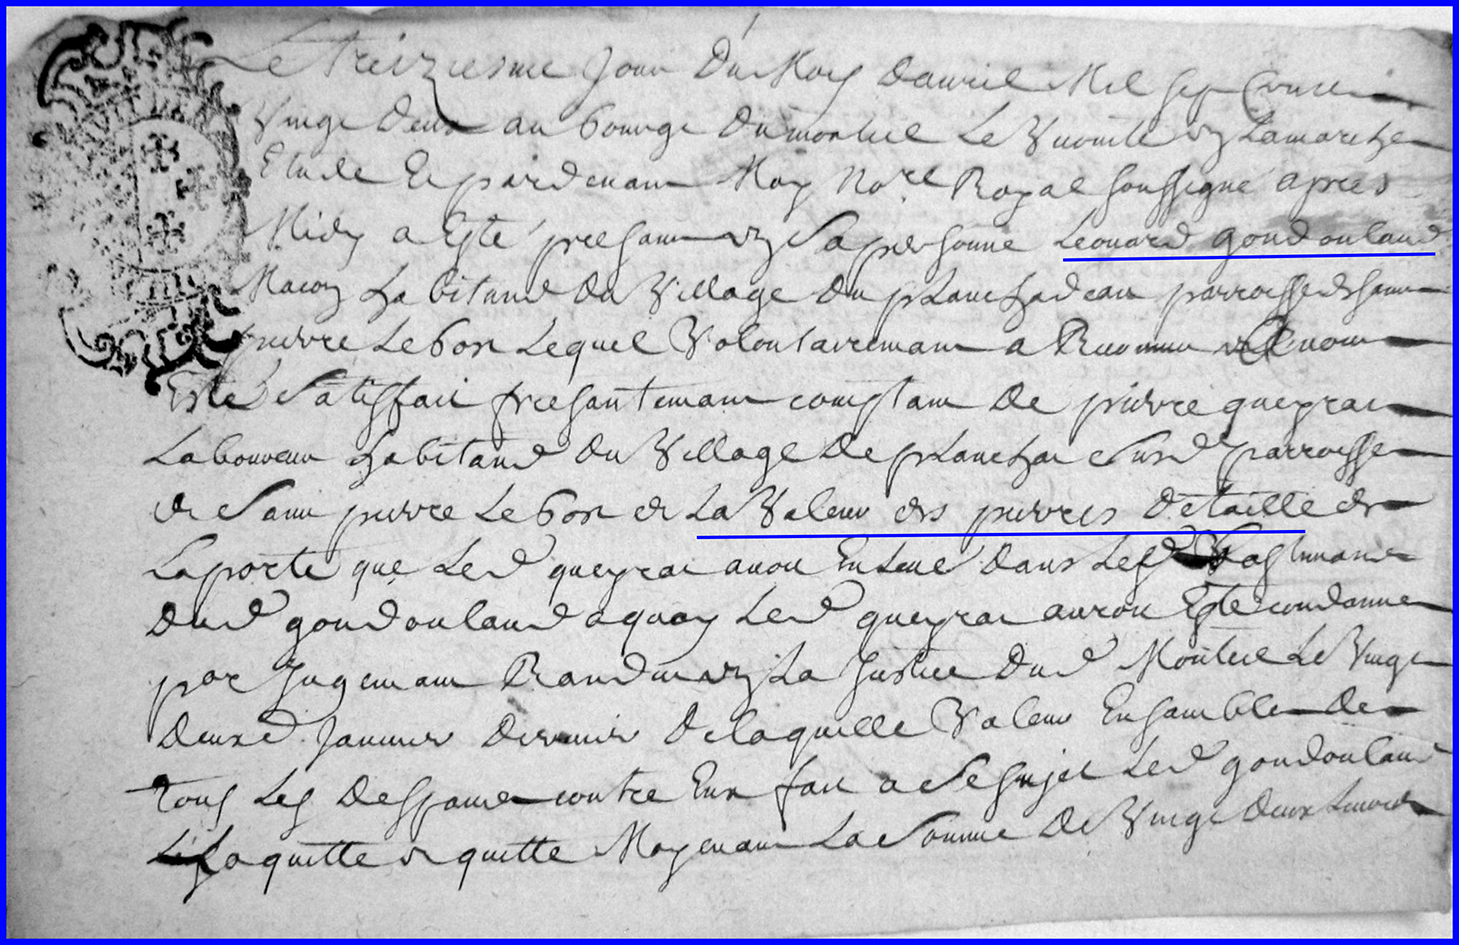 Le treiziesme Jour Du Moy Dauril Mil sep Cens
Vingt Deux au bourge Dumonteil Le Vicomte en Lamarche
Etude Et pardeuant Moy No.re Royal soussigné apres
Midy a Esté presant en Sa personne Leonard gondouland
Macon habitand Du Village Du planchadeau parroisse de saint
pierre Le bost Lequel Volontairemant a Recognu
Esté Satisffait presantemant comptam De pierre queyrai
Laboureur habitand Du Village De plancha susd parroisse
de Sain pierre Le bost de La Valeur des pierres De taille de
La porte que Led queyrai auoit Enleué Dans Les Bastimans
Dud gondouland a quoy Led queyrai auroit Esté condamne
par Jugemant Randu en La Justice Dud Monteil Le Vingt
Deuxe Januier Dernier De laquelle Valeur Ensamble De
tous Les Despans contre Eux fait a Ce sujet Led gondouland
L'aquitte et quitte Moyenant La Somme De Vingt Deux Liures